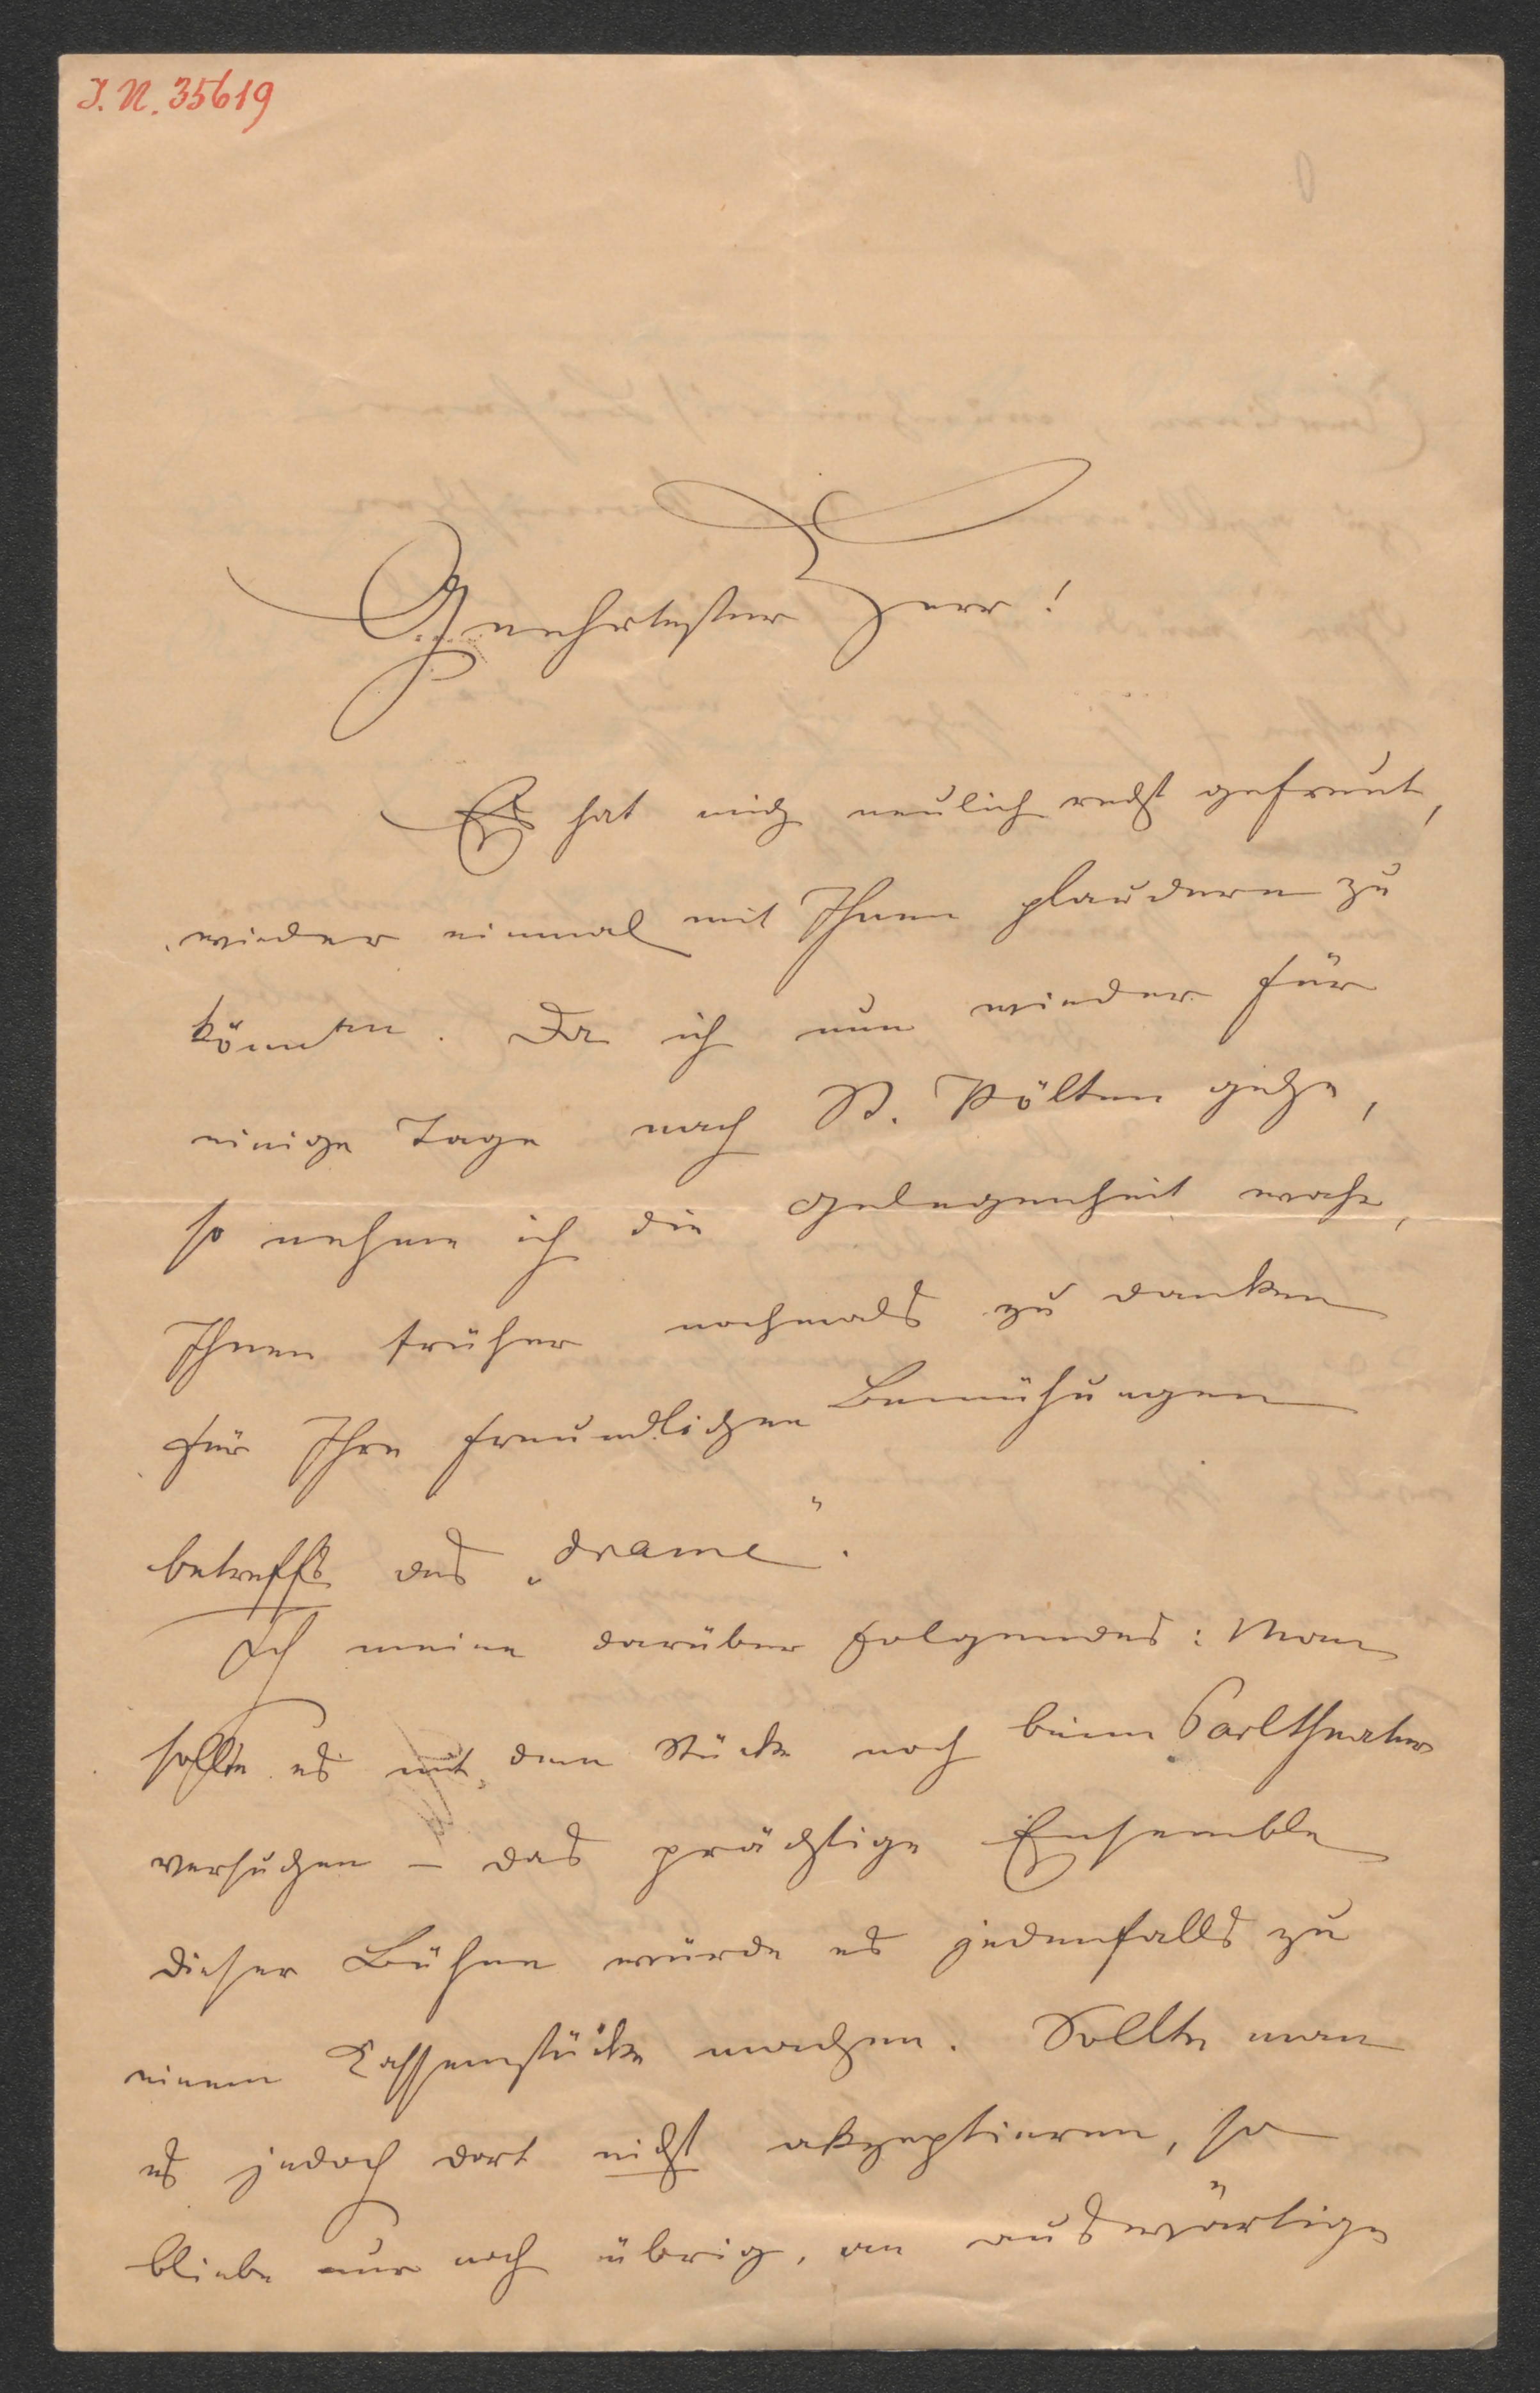 I. N. 35619
Geehrtester Herr!
Es hat mich neulich recht gefreut,
wieder einmal mit Ihnen plaudern zu
können. Da ich nun wieder für
einige Tage nach St. Pölten gehe,
so nehme ich die Gelegenheit wahr,
Ihnen früher nochmals zu danken
für Ihre freundlichen Bemühungen
betreffs des „drame“.
Ich meine darüber folgendes: Man
sollte es mit dem Stücke noch beim Carltheater
versuchen – das prächtige Ensemble
dieser Bühne würde es jedenfalls zu
einem Kassenstücke machen. Sollte man
es jedoch dort nicht akzeptieren, so
bliebe nur noch übrig, an auswärtige